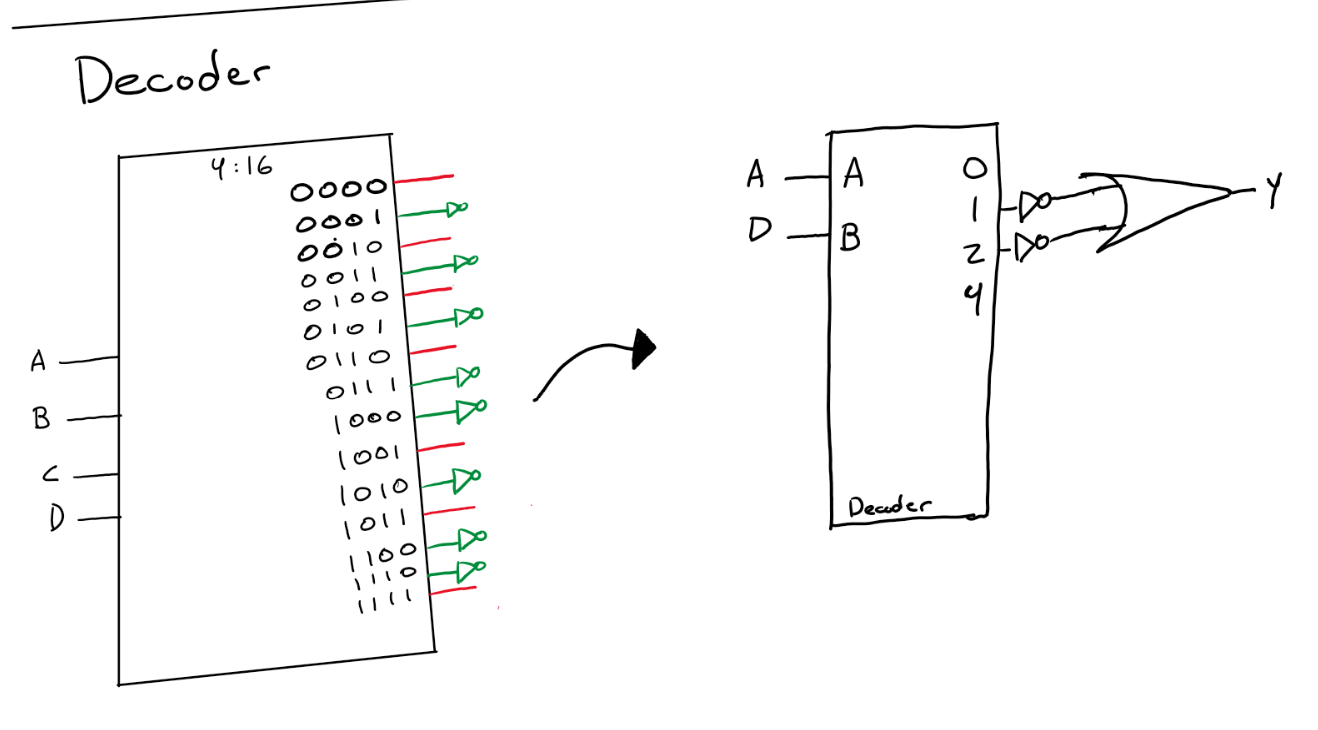 Decoder
4:16
0000
0001
0010
0011
0100
0101
0110
0111
1000
1001
1010
1011
1100
1110
1111
A
B
C
D
A A 0
1 Y
D B 2
4
Decoder